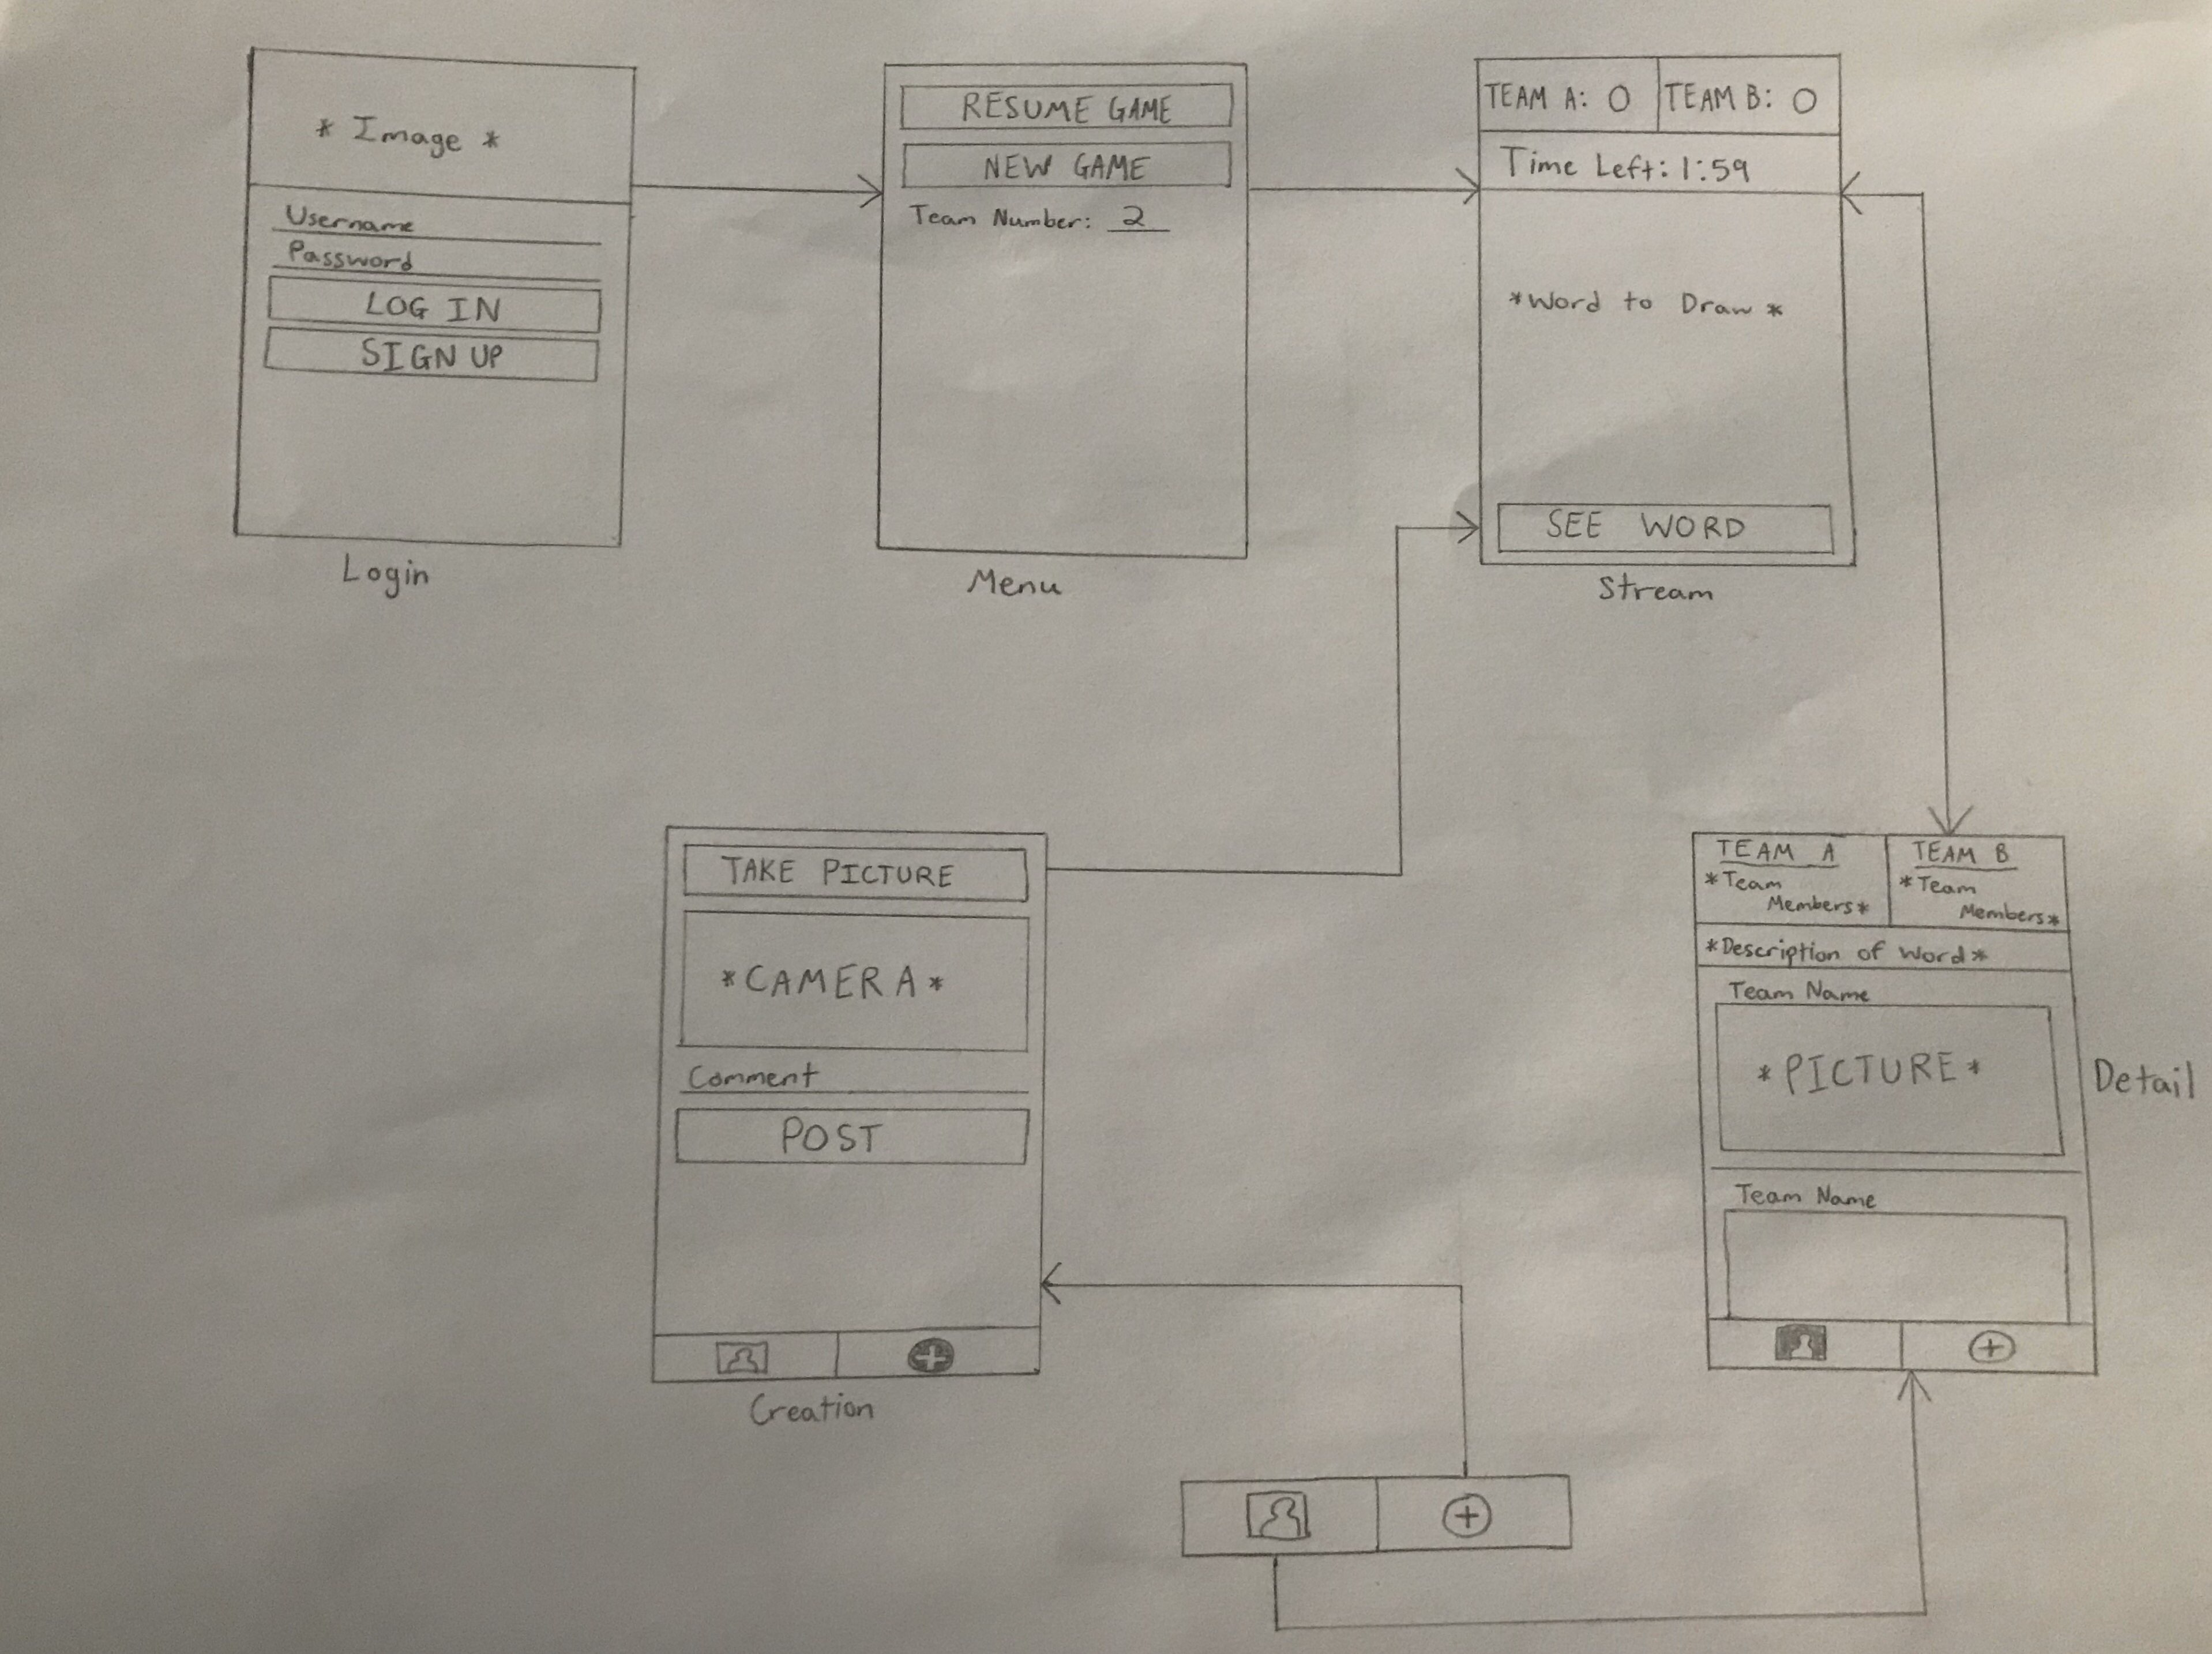 * Image *
Username
Password
LOG IN
SIGN UP
Login
RESUME GAME
NEW GAME
Team Number: 2
Menu
TEAM A: 0
TEAM B: 0
Time Left: 1:59
*Word to Draw*
SEE WORD
Stream
TAKE PICTURE
*CAMERA*
Comment
POST
Creation
TEAM A
*Team
Members*
TEAM B
*Team
Members*
*Description of Word*
Team Name
*PICTURE*
Team Name
Detail